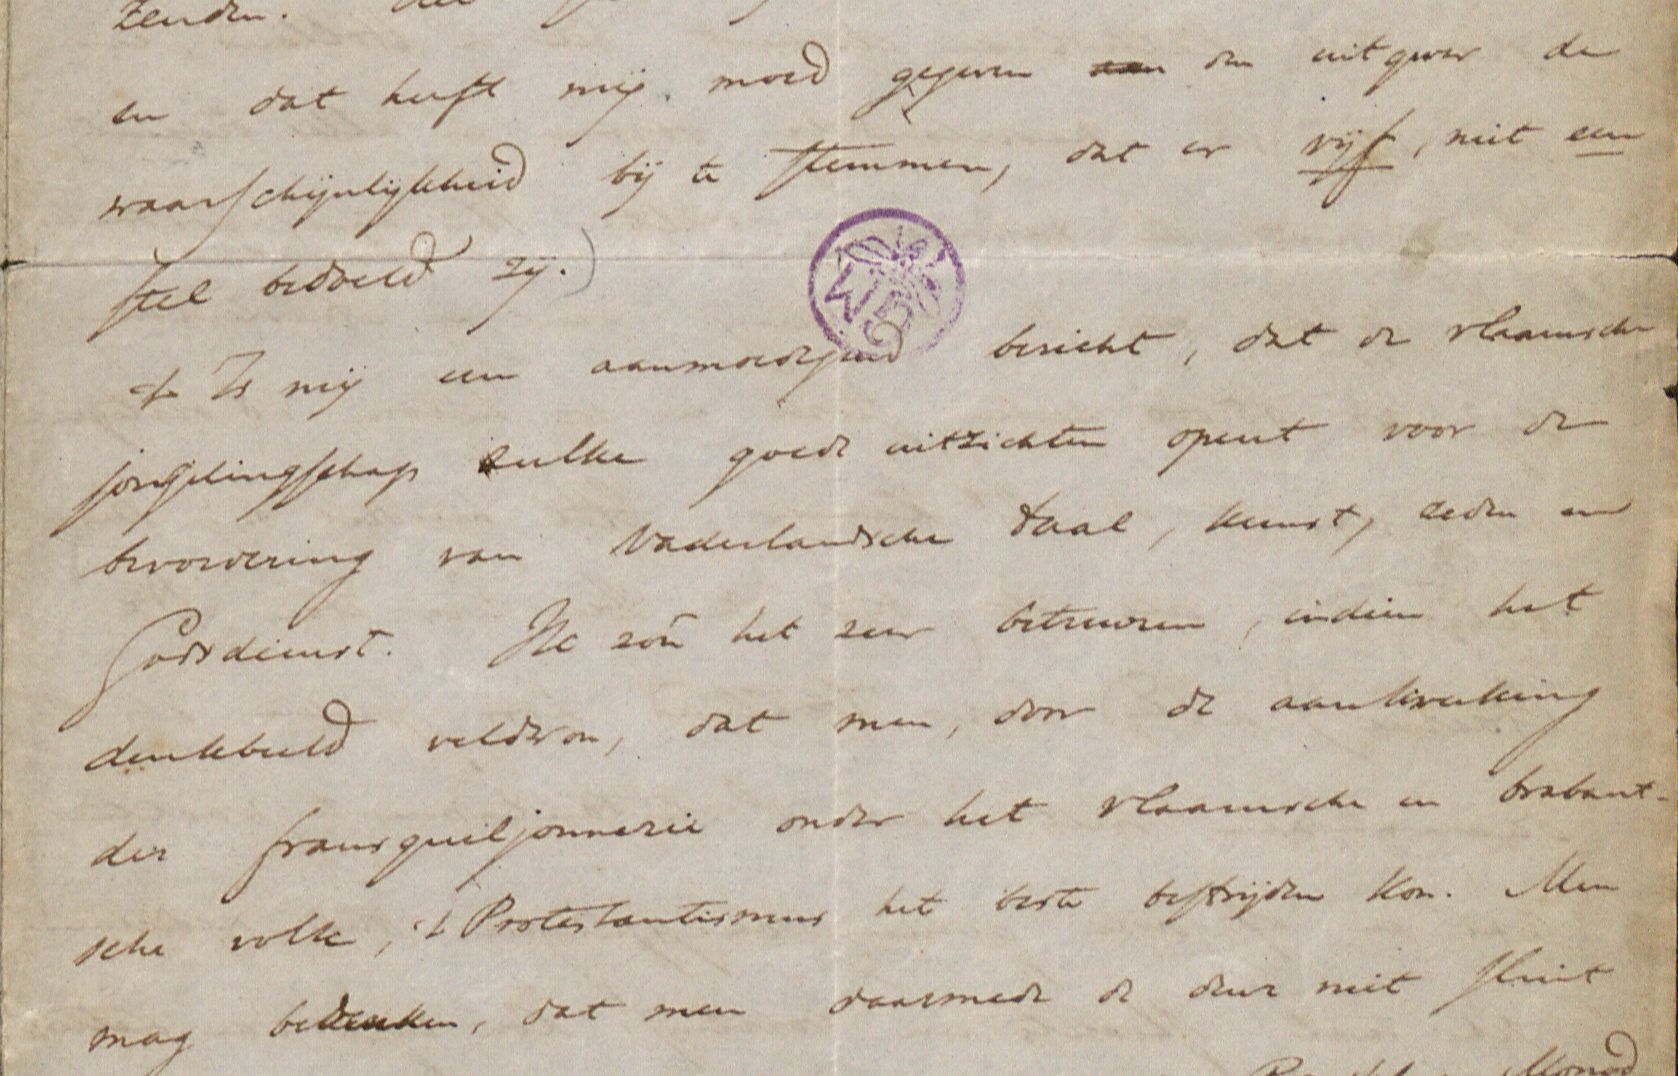 zenden.
en dat heeft mij moed gegeven den uitgever de
waarschijnlijkheid bij te stemmen, dat er vijf, niet een
stel bedoeld zij.)
't Is mij een aanmoedigend bericht, dat de vlaamsche
jongelingschap zulke goede uitzichten opent voor de
bevordering van Vaderlandsche taal, kunst, zeden en
Godsdienst. Ik zoú het zeer betreuren, indien het
denkbeeld veldwon, dat men, door de aankweeking
der fransquiljonnerie onder het vlaamsche en brabant-
sche volk, 't Protestantismus het beste bestrijden kon. Men
mag bedenken, dat men daarmede de deur niet sluit
Monod